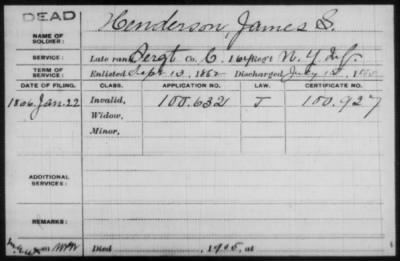 DEAD
Henderson, James S.
NAME OF SOLDIER:
SERVICE: Late rank Sergt Co. C. 164 Regt N.Y. Inf.
TERM OF SERVICE: Enlisted Sept 13, 1862 Discharged July 15, 1865
DATE OF FILING. CLASS. APPLICATION NO. LAW. CERTIFICATE NO.
1866 Jan. 22 Invalid, 100.632 J 100.927
Widow,
Minor,
ADDITIONAL SERVICES:
REMARKS:
Died 1905, at